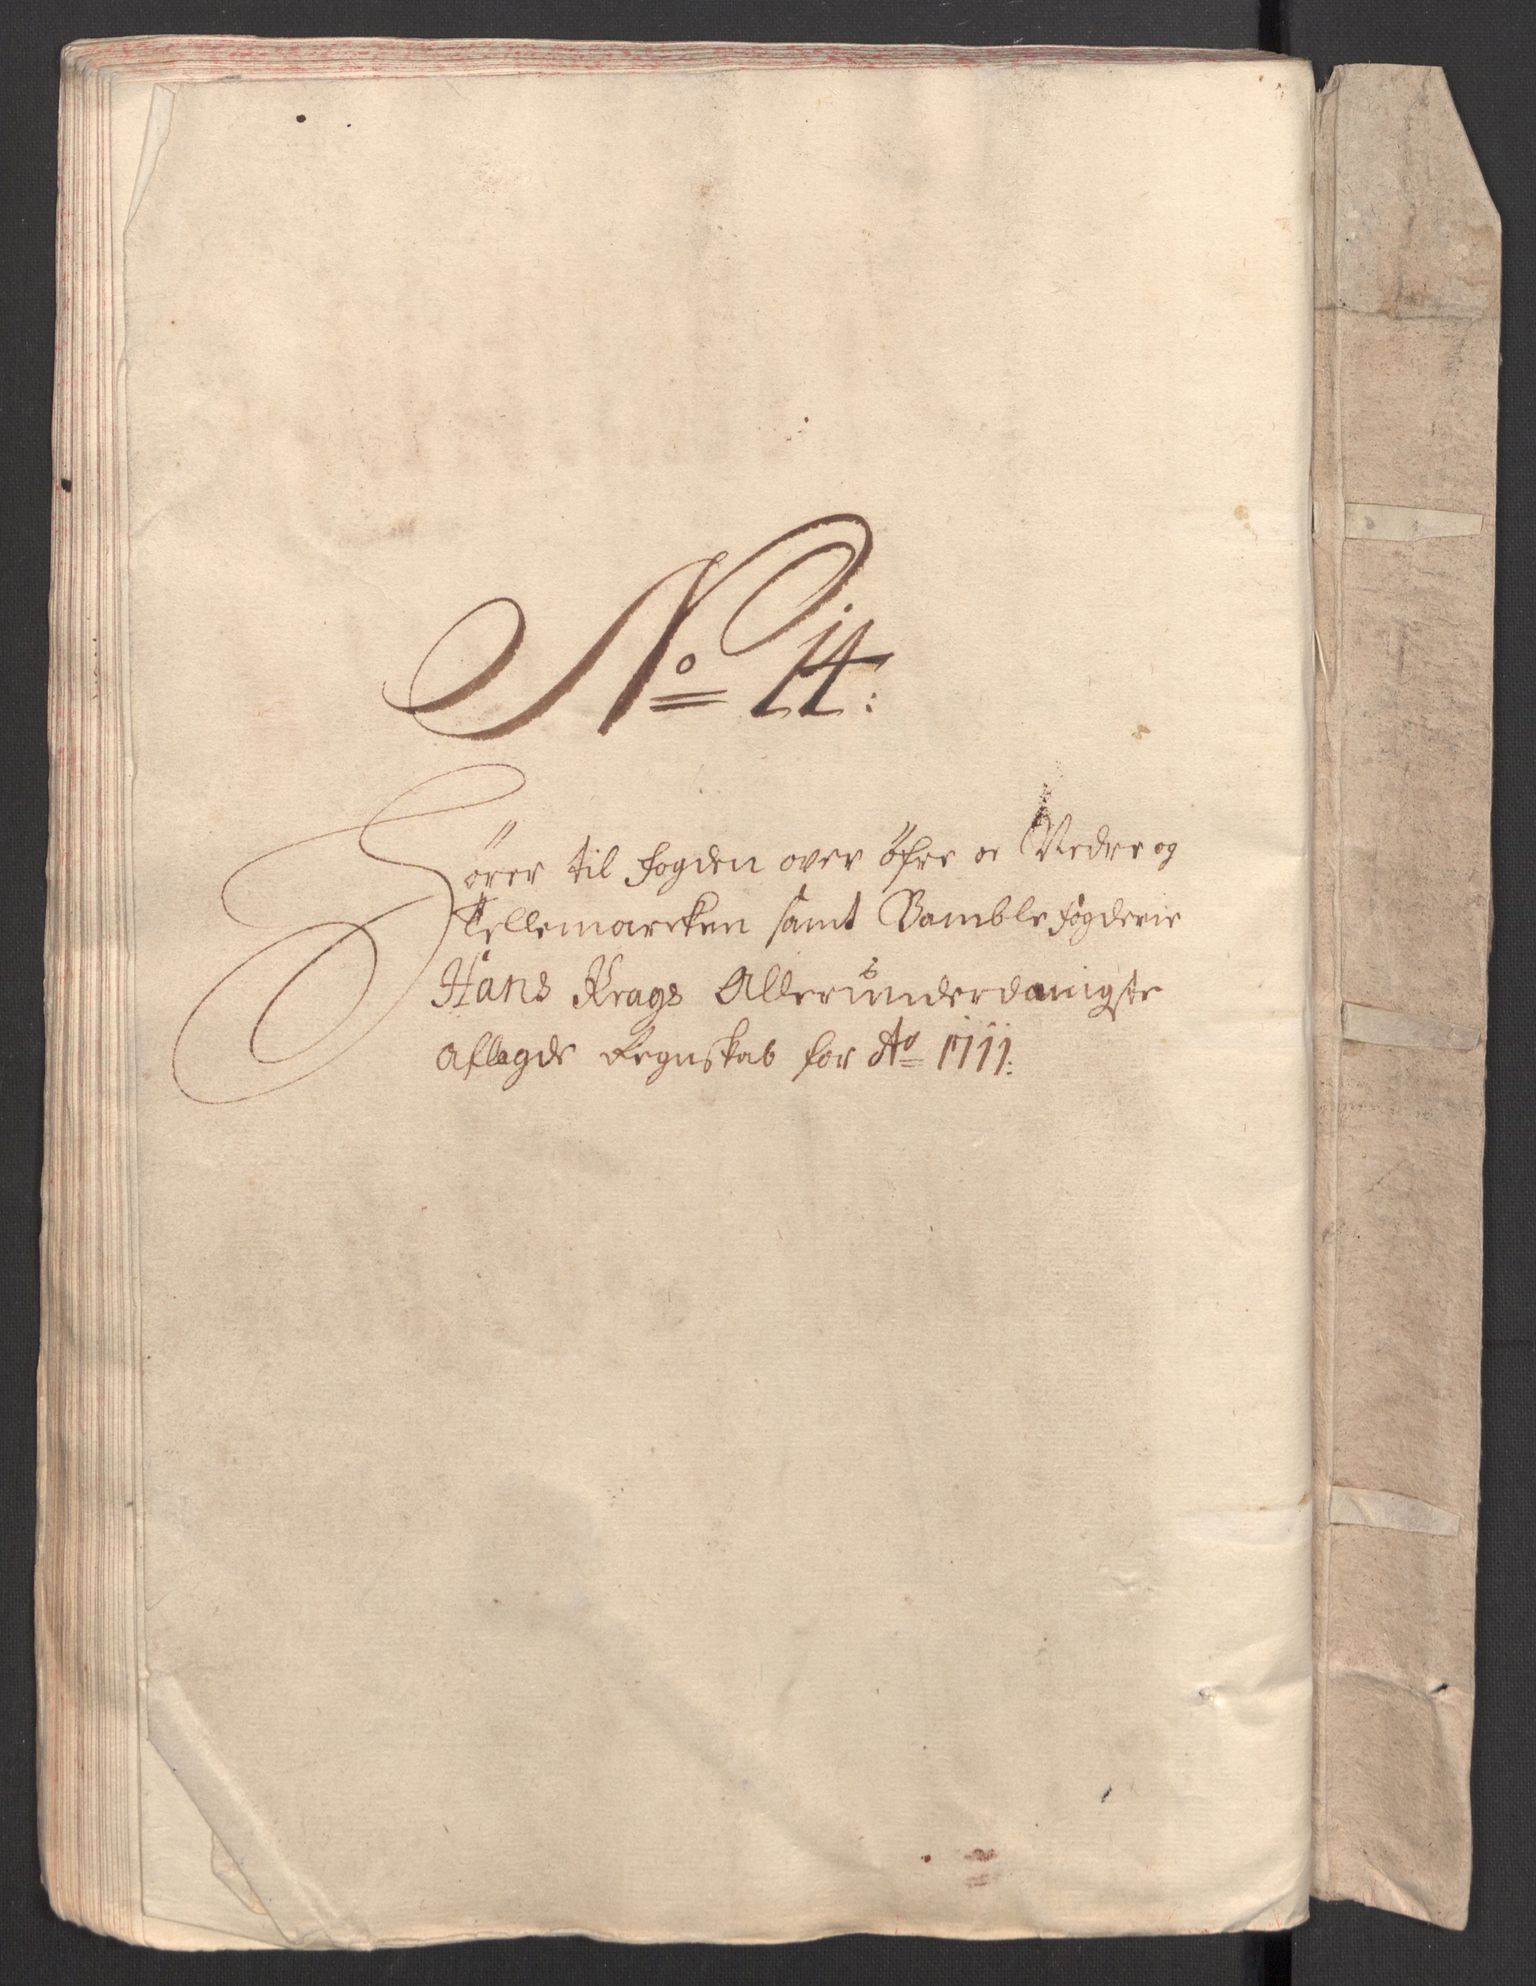 No 14:
Hörer til fogden over öfre oc Nedre og
Tellemarcken samt Bamble fögderie
Hans Krags Allerunderdanigste
aflagde Regnskab for Ao 1711: